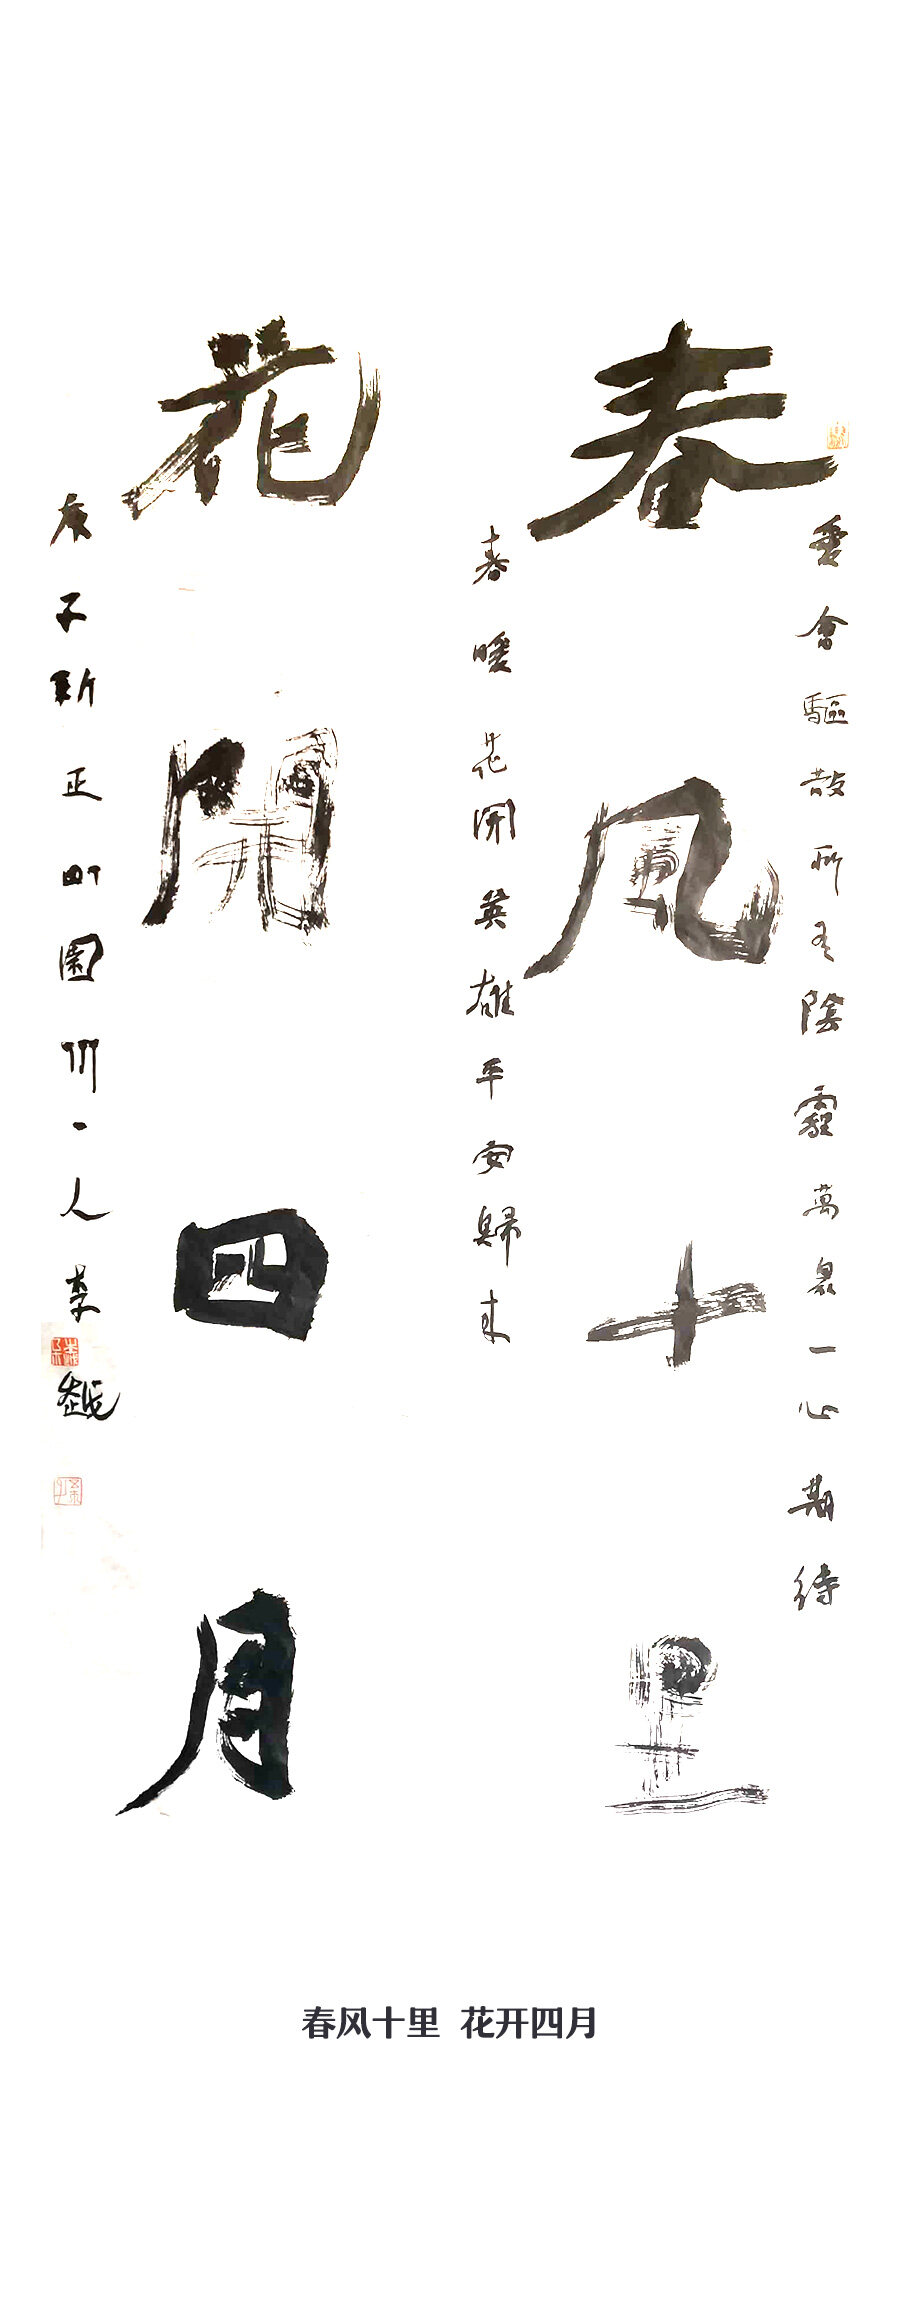 愛會驅散所有陰霾萬衆一心期待
春風十里
春暖花開英雄平安歸来
花開四月
庚子新正園一人李越
春风十里 花开四月